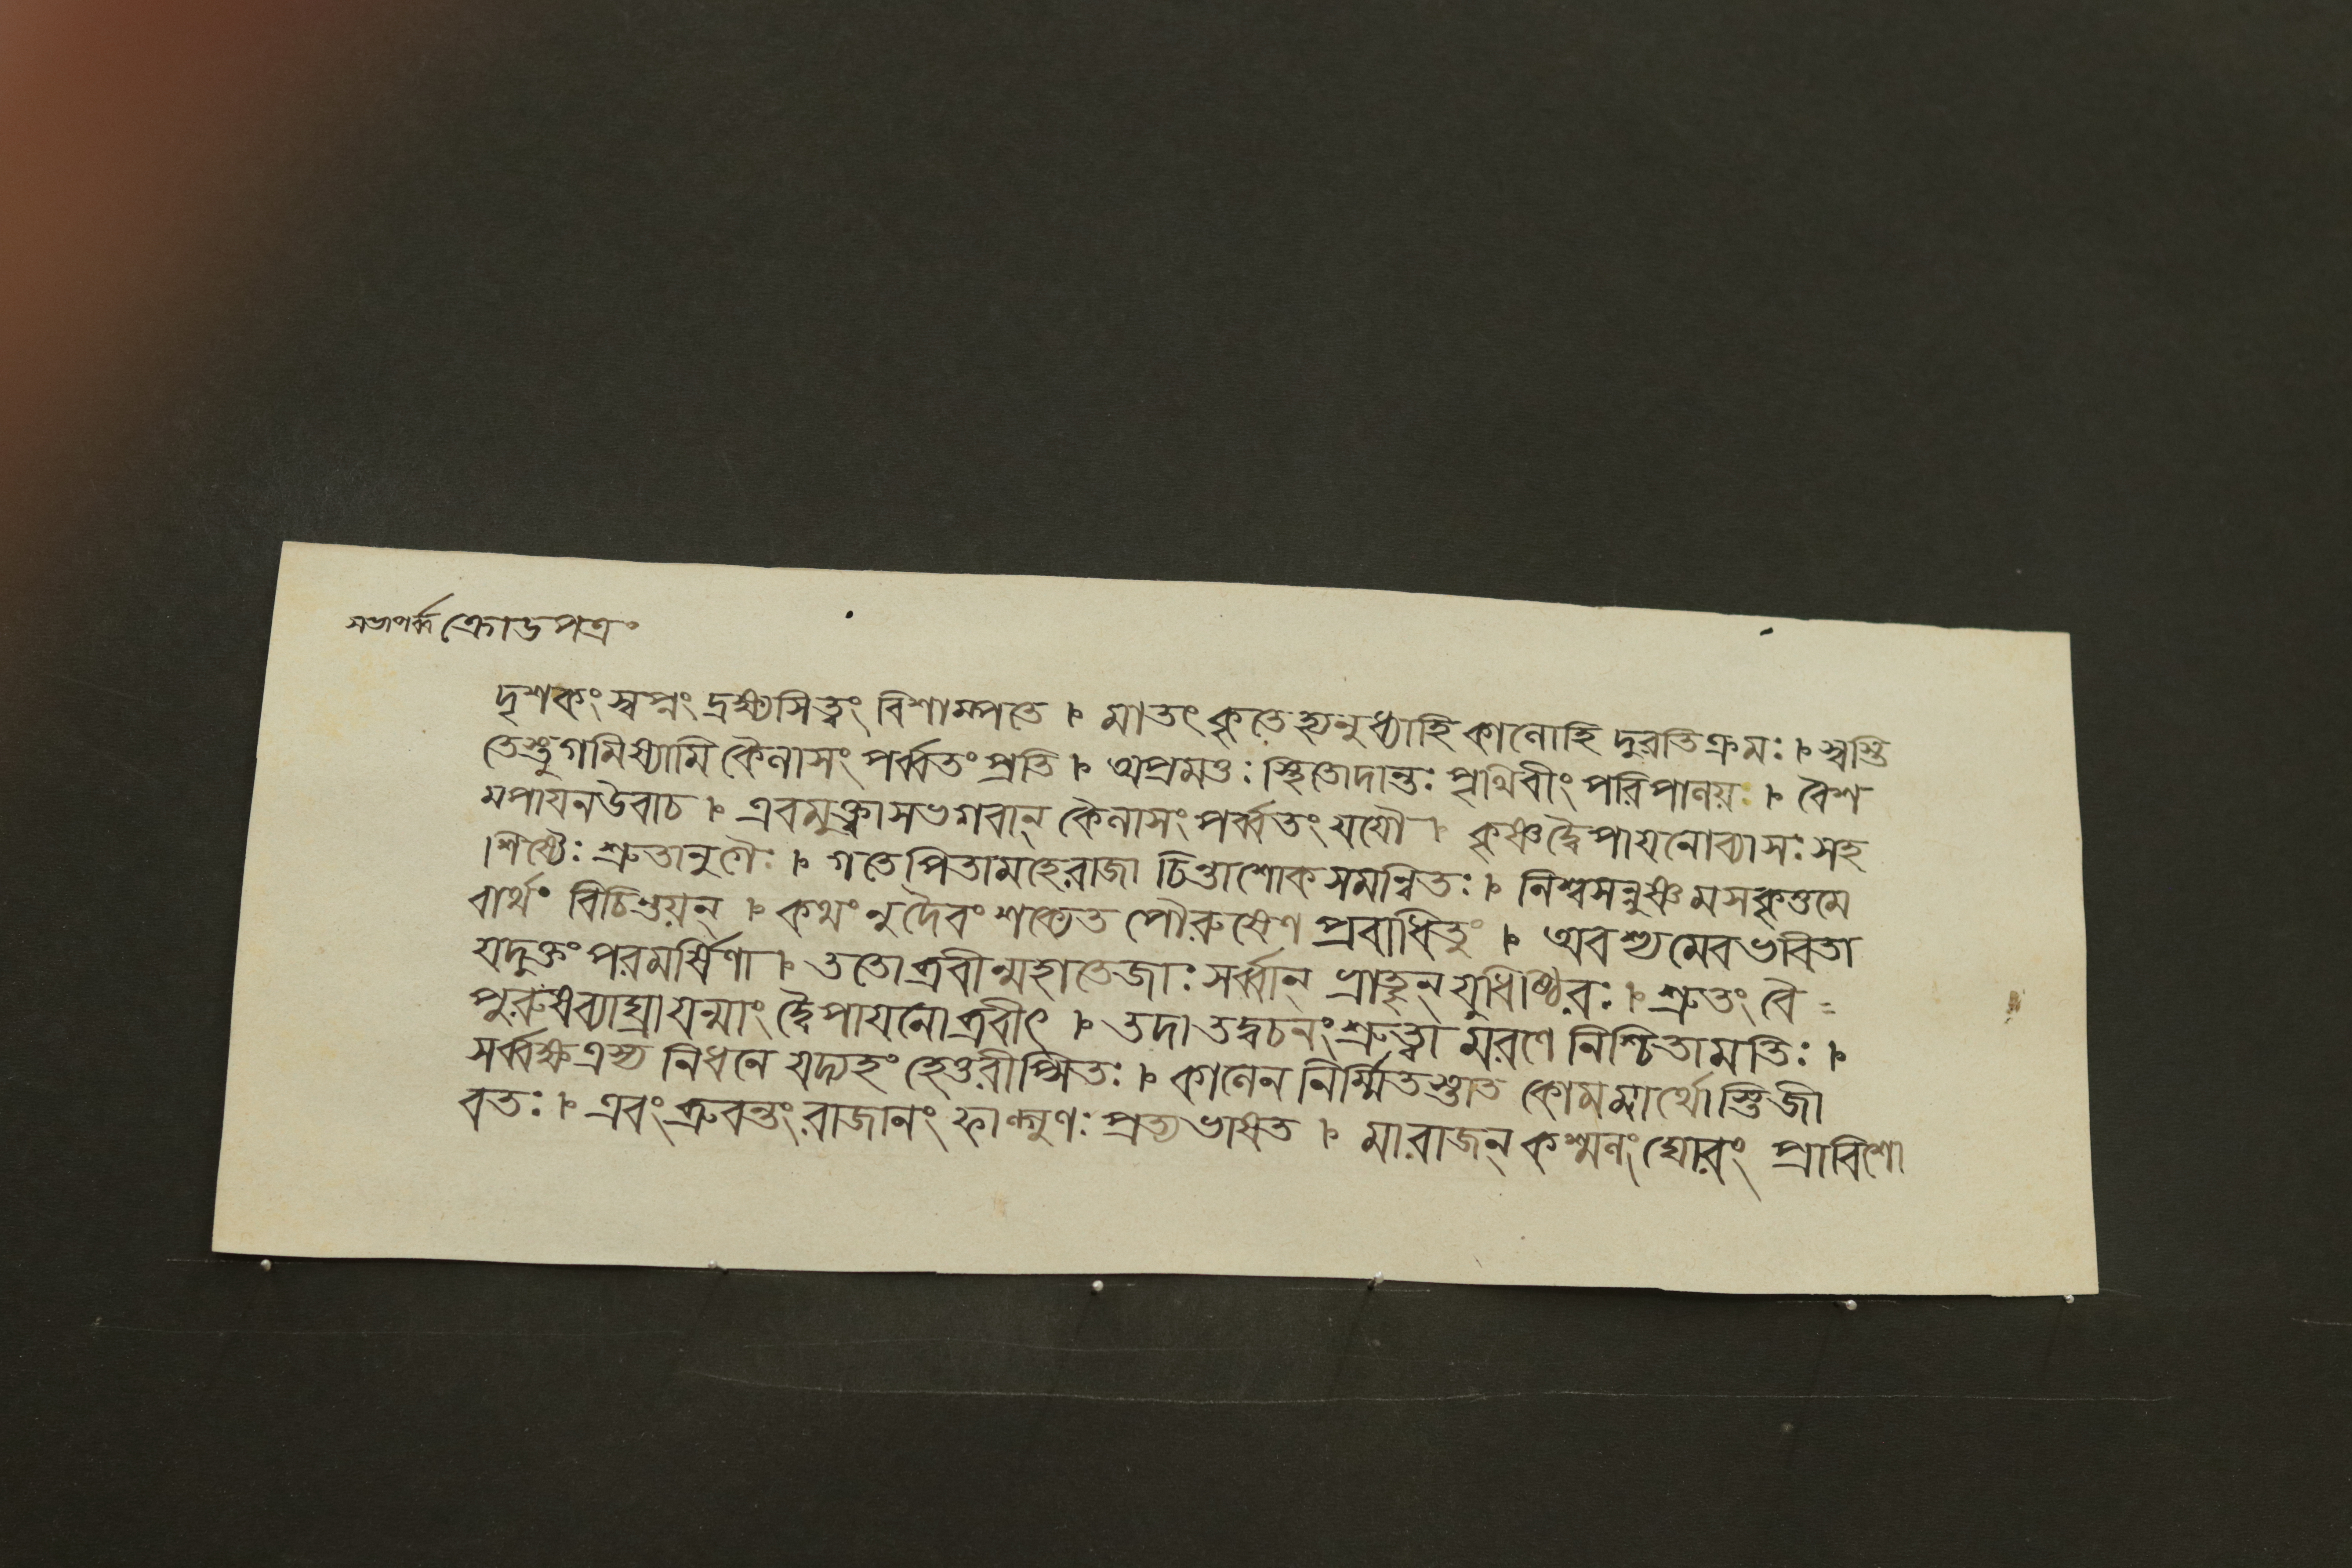 সভাপর্ব্ব ক্রোডপত্রং
দৃশকং স্বপ্নং দ্রক্ষ্যসিত্বং বিশাম্পতে । মাতৎ কৃতে হ্যনুধ্যাহি কালোহি দুরতিক্রমঃ । স্বস্তি
তেস্তু গমিষ্যামি কৈলাসং পর্ব্বতং প্রতি । অপ্রমত্তঃ স্থিতোদান্তঃ পৃথিবীং পরিপালয় । বৈশ
মপায়নউবাচ । এবমুক্ত্বাসভগবান্ কৈলাসং পর্ব্বতং যযৌ । কৃষ্ণদ্বৈপায়নোব্যাসঃ সহ
শিষ্যৈঃ শ্রুতানুগৈঃ । গতেপিতামহেরাজা চিন্তাশোকসমন্বিতঃ । নিশ্বসন্নুষ্ণমসকৃত্তমে
বার্থং বিচিন্তয়ন্ । কথংনুদৈবং শক্যেত পৌরুষেণ প্রবাধিতুং । অবশ্যমেবভবিতা
যদুক্তং পরমর্ষিণা । ততোব্রবীন্মহাতেজাঃ সর্ব্বান্ ভ্রাতৃন্ যুধিষ্ঠিরঃ । শ্রুতং বৈ=
পুরুষব্যাঘ্রা যন্মাং দ্বৈপায়নোব্রবীৎ । তদা তদ্বচনং শ্রুত্বা মরণে নিশ্চিতামতিঃ ।
সর্ব্বক্ষত্রস্য নিধনে যদ্যহং হেতুরীপ্সিতঃ । কালেন নির্ম্মিতস্তাত কোমমার্থোস্তিজী
বতঃ । এবংব্রুবন্তং রাজানং ফাল্গুণঃ প্রত্যভাষত । মারাজন্ কশ্মলং ঘোরং প্রাবিশো